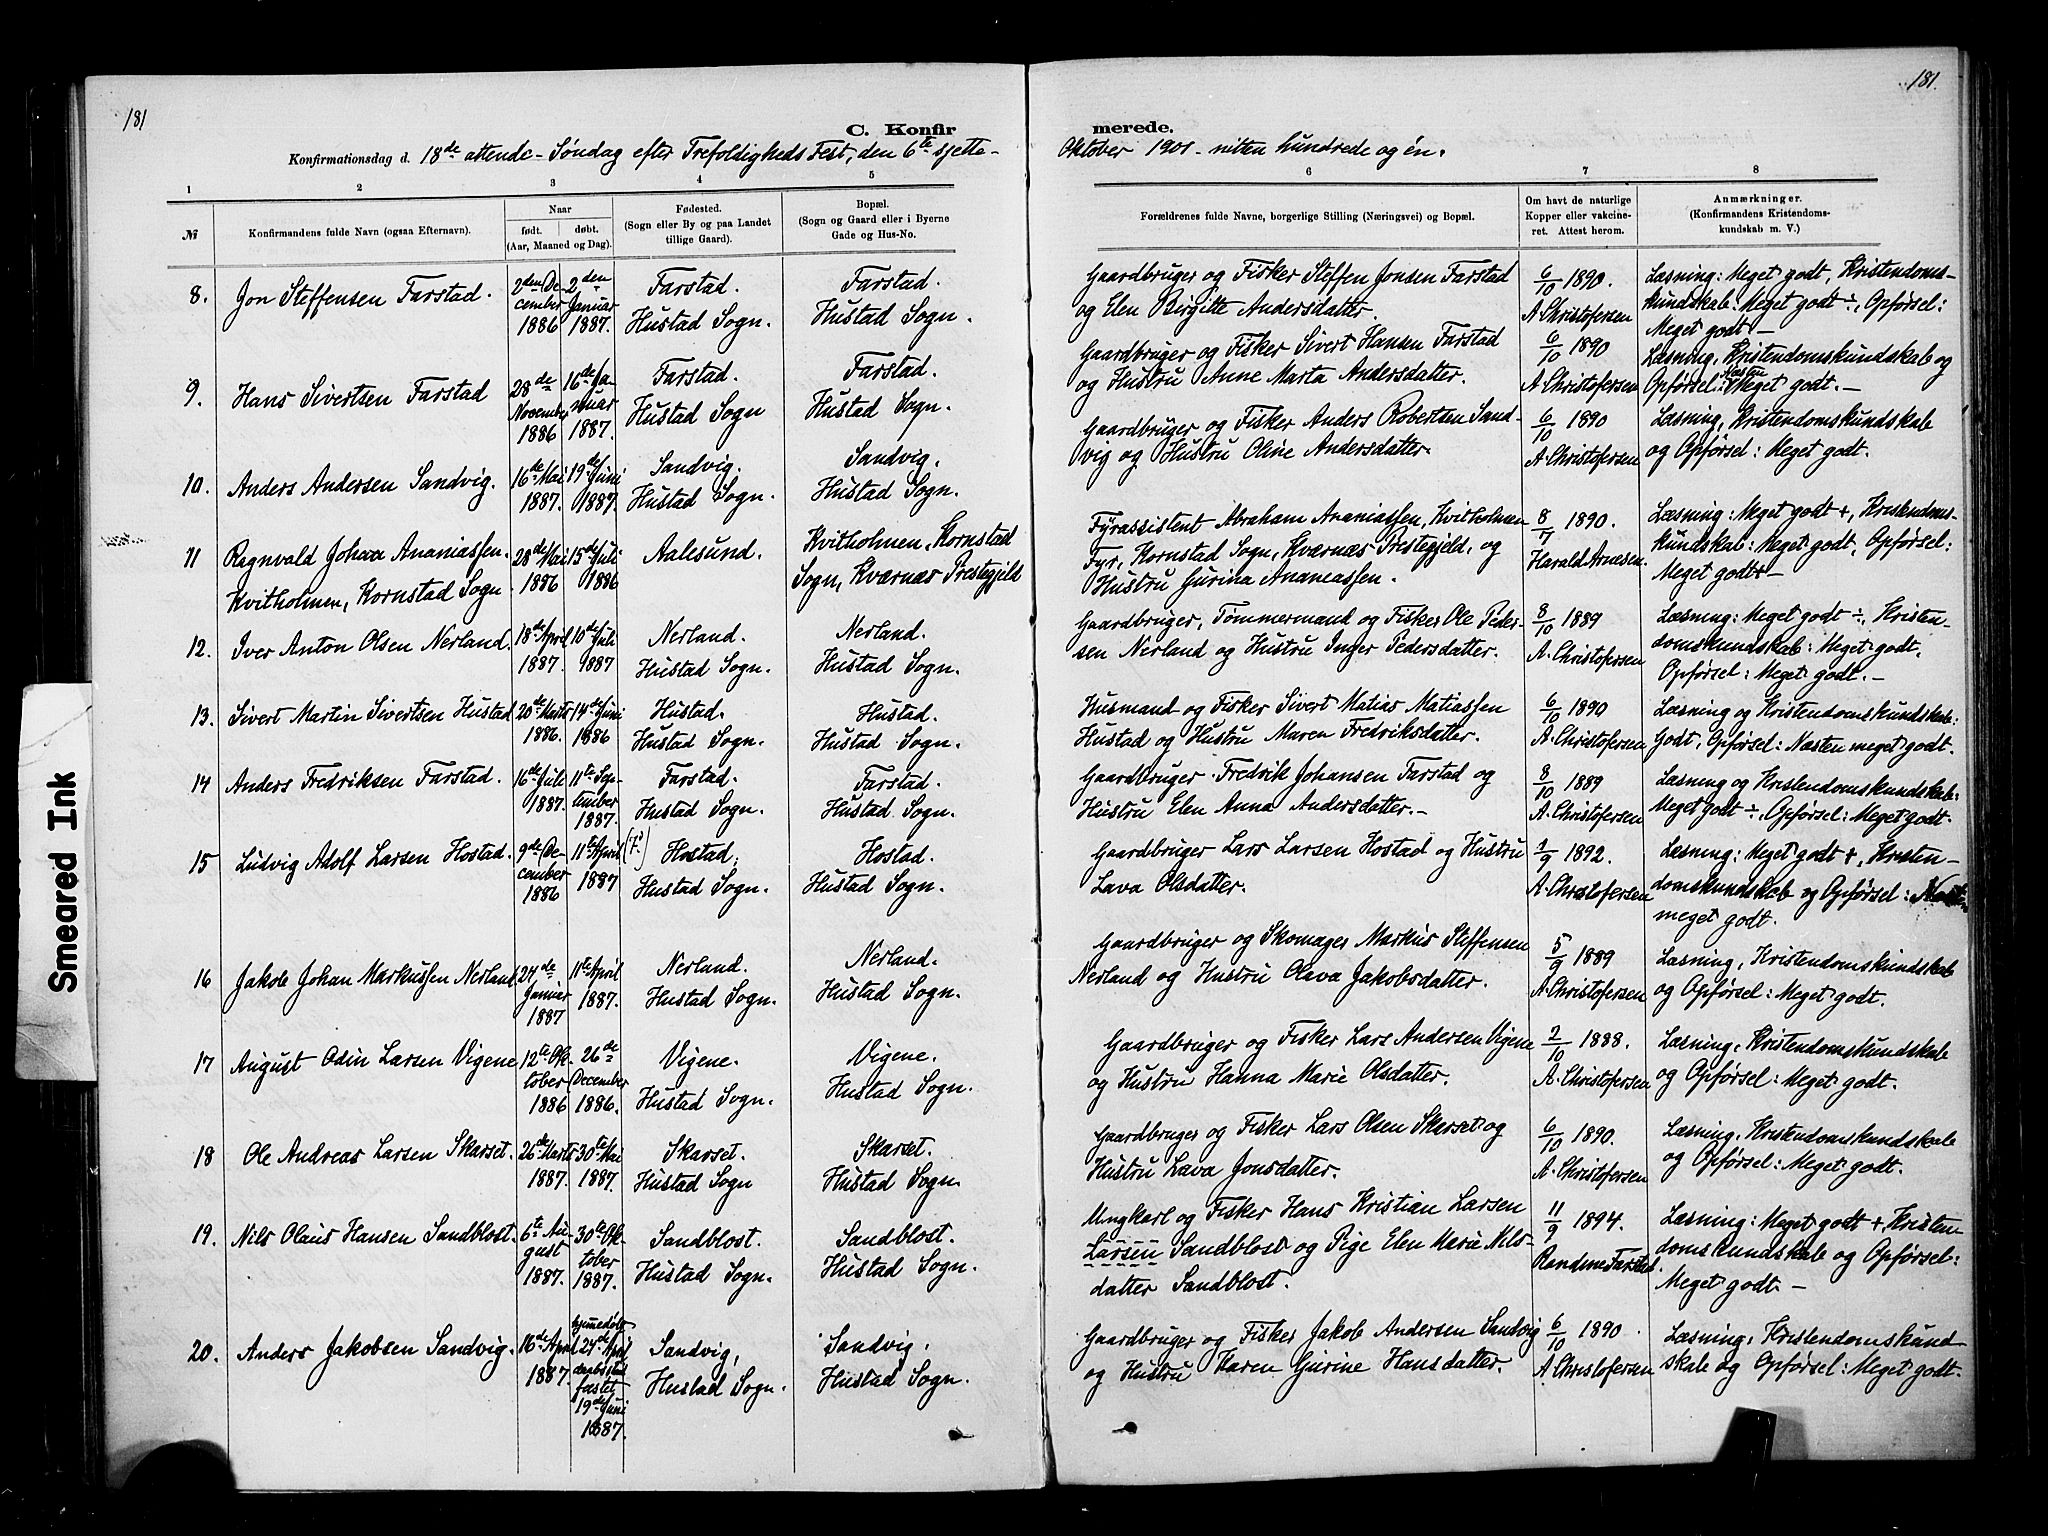 181
181.
C. Konfirmerede.
Konfirmationsdag d. 18de attende Søndag efter Trefoldigheds Fest, den 6te sjette Oktober 1901 - nitten hundrede og én.
1 2 3 4 5 6 7 8
№
Konfirmandens fulde Navn (ogsaa Efternavn).
Naar
født. døbt.
(Aar, Maaned og Dag).
Fødested.
(Sogn eller By og paa Landet
tillige Gaard).
Bopæl.
(Sogn og Gaard eller i Byerne
Gade og Hus-No.
Forældrenes fulde Navne, borgerlige Stilling (Næringsvei) og Bopæl.
Om havt de naturlige
Kopper eller vakcine-
ret. Attest herom.
Anmærkninger.
(Konfirmandens Kristendoms-
kundskab m. V.)
8. Jon Steffensen Farstad.
2den December 1886
2den Januar 1887.
Farstad. Hustad Sogn.
Farstad. Hustad Sogn.
Gaardbruger og Fisker Steffen Jonsen Farstad
og Elen Birgitte Andersdatter.
6/10 1890. A. Christofersen
Læsning: Meget godt, Kristendoms-
kundskab: Meget godt ÷, Opførsel:
Meget godt –
9. Hans Sivertsen Farstad
28de November 1886
16de Januar 1887.
Farstad. Hustad Sogn
Farstad. Hustad Sogn.
Gaardbruger og Fisker Sivert Hansen Farstad
og Hustru Anne Marta Andersdatter.
6/10 1890 A. Christofersen
Læsning, Kristendomskundskab og
Opførsel: Næsten Meget godt. –
10. Anders Andersen Sandvig.
16de Mai 1887.
19de Juni 1887.
Sandvig. Hustad Sogn.
Sandvig. Hustad Sogn.
Gaardbruger og Fisker Anders Robertsen Sand-
vig og Hustru Oline Andersdatter.
6/10 1890 A. Christofersen
Læsning, Kristendomskundskab
og Opførsel: Meget godt.
11 Ragnvald Johan Ananiassen.
Kvitholmen, Kornstad Sogn
28de Mai 1886
15de Juli 1886
Aalesund.
Kvitholmen, Kornstad
Sogn, Kværnæs Prestegjeld
Fyrassistent Abraham Ananiassen, Kvitholmen
Fyr, Kornstad Sogn, Kværnæs Prestegjeld, og
Hustru Jurina Ananiassen.
8/7 1890. Harald Arnesen.
Læsning: Meget godt +, Kristendoms-
kundskab: Meget godt, Opførsel:
Meget godt + –
12. Iver Anton Olsen Nerland.
18de April 1887.
10de Juli 1887
Nerland. Hustad Sogn.
Nerland. Hustad Sogn.
Gaardbruger, Tømmermand og Fisker Ole Peder-
sen Nerland og Hustru Inger Pedersdatter.
8/10 1889 A. Christofersen
Læsning: Meget godt ÷, Kristen-
domskundskab: Meget godt,
Opførsel: Meget godt. –
13. Sivert Martin Sivertsen Hustad
20de Marts 1886.
14de Juni 1886
Hustad. Hustad Sogn.
Hustad. Hustad Sogn.
Husmand og Fisker Sivert Matias Matiassen
Hustad og Hustru Maren Fredriksdatter.
6/10 1890 A. Christofersen
Læsning og Kristendomskundskab:
Godt, Opførsel: Næsten meget godt.
14 Anders Fredriksen Farstad.
16de Juli 1887.
11te September 1887.
Farstad. Hustad Sogn.
Farstad. Hustad Sogn.
Gaardbruger Fredrik Johansen Farstad og
Hustru Elen Anna Andersdatter. –
8/10 1889 A. Christofersen
Læsning og Kristendomskundskab:
Meget godt ÷, Opførsel: Meget godt.
15 Ludvig Adolf Larsen Hostad.
9de December 1886
11te April 1887
Hostad, Hustad Sogn.
Hostad. Hustad Sogn.
Gaardbruger Lars Larsen Hostad og Hustru
Lava Olsdatter.
1/9 1892. A. Christofersen
Læsning: Meget godt +, Kristen-
domskundskab og Opførsel: Næsten
meget godt.
16 Jakob Johan Markussen Nerland
24de Januar 1887
11te April 1887.
Nerland. Hustad Sogn.
Nerland. Hustad Sogn.
Gaardbruger og Skomager Markus Steffensen
Nerland og Hustru Olava Jakobsdatter.
5/9 1889 A. Christofersen
Læsning, Kristendomskundskab
og Opførsel: Meget godt.
17 August Odin Larsen Vigene
12te Oktober 1886
26de December 1886.
Vigene. Hustad Sogn.
Vigene. Hustad Sogn.
Gaardbruger og Fisker Lars Andersen Vigene
og Hustru Hanna Marie Olsdatter.
2/10 1888. A. Christofersen
Læsning, Kristendomskundskab
og Opførsel: Meget godt.
18 Ole Andreas Larsen Skarset.
26de Marts 1887.
30te Mai 1887.
Skarset. Hustad Sogn
Skarset. Hustad Sogn.
Gaardbruger og Fisker Lars Olsen Skarset og
Hustru Lava Jonsdatter.
6/10 1890. A. Christofersen
Læsning, Kristendomskundskab
og Opførsel: Meget godt.
19. Nils Olaus Hansen Sandblost.
6te August 1887.
30te Oktober 1887.
Sandblost. Hustad Sogn.
Sandblost. Hustad Sogn.
Ungkarl og Fisker Hans Kristian Larsen
Larsen Sandblost og Pige Elen Marie Nils-
datter Sandblost.
11/9 1894. Randine Farstad.
Læsning: Meget godt + Kristen-
domskundskab og Opførsel:
Meget godt. –
20. Anders Jakobsen Sandvig.
16de April 1887.
hjemmedøbt 24de April daabs stadfæstet 19de Juni 1887.
Sandvig, Hustad Sogn.
Sandvig. Hustad Sogn.
Gaardbruger og Fisker Jakob Andersen Sandvig
og Hustru Karen Gurine Hansdatter.
6/10 1890. A. Christofersen
Læsning, Kristendomskund-
skab og Opførsel: Meget godt.
Smeared Ink